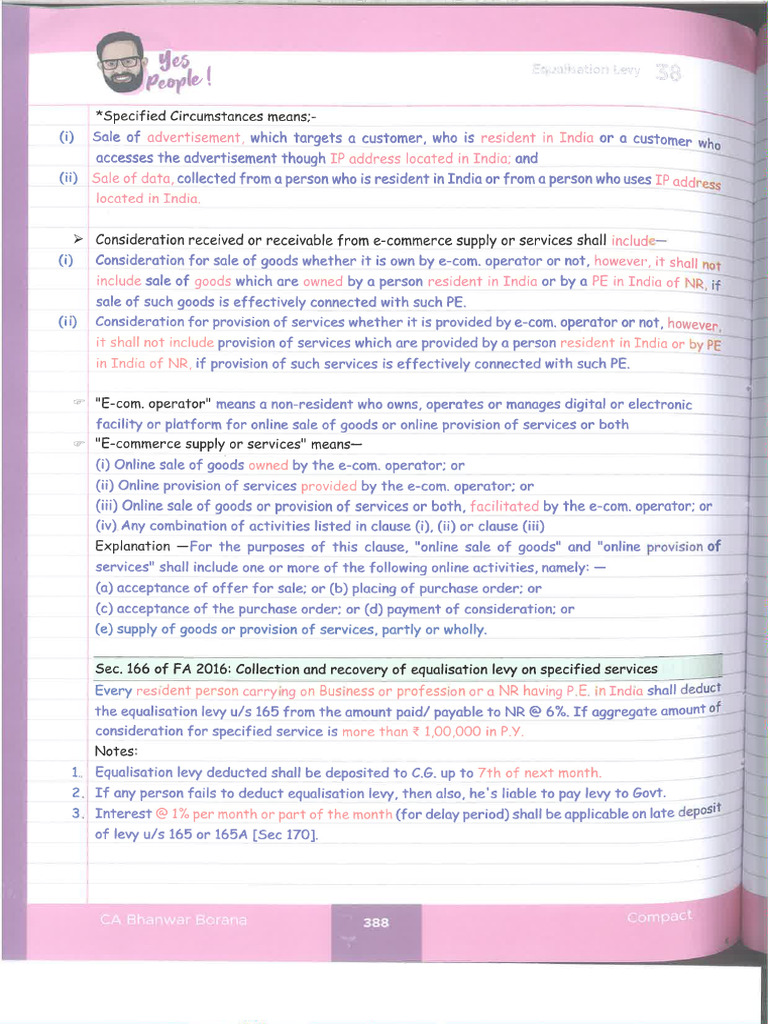 Yes
People!
Equalisation Levy 38
*Specified Circumstances means;-
(i) Sale of advertisement, which targets a customer, who is resident in India or a customer who
accesses the advertisement though IP address located in India; and
(ii) Sale of data, collected from a person who is resident in India or from a person who uses IP address
located in India.
➤ Consideration received or receivable from e-commerce supply or services shall include—
(i) Consideration for sale of goods whether it is own by e-com. operator or not, however, it shall not
include sale of goods which are owned by a person resident in India or by a PE in India of NR, if
sale of such goods is effectively connected with such PE.
(ii) Consideration for provision of services whether it is provided by e-com. operator or not, however,
it shall not include provision of services which are provided by a person resident in India or by PE
in India of NR, if provision of such services is effectively connected with such PE.
☞ "E-com. operator" means a non-resident who owns, operates or manages digital or electronic
facility or platform for online sale of goods or online provision of services or both
☞ "E-commerce supply or services" means—
(i) Online sale of goods owned by the e-com. operator; or
(ii) Online provision of services provided by the e-com. operator; or
(iii) Online sale of goods or provision of services or both, facilitated by the e-com. operator; or
(iv) Any combination of activities listed in clause (i), (ii) or clause (iii)
Explanation —For the purposes of this clause, "online sale of goods" and "online provision of
services" shall include one or more of the following online activities, namely: —
(a) acceptance of offer for sale; or (b) placing of purchase order; or
(c) acceptance of the purchase order; or (d) payment of consideration; or
(e) supply of goods or provision of services, partly or wholly.
Sec. 166 of FA 2016: Collection and recovery of equalisation levy on specified services
Every resident person carrying on Business or profession or a NR having P.E. in India shall deduct
the equalisation levy u/s 165 from the amount paid/ payable to NR @ 6%. If aggregate amount of
consideration for specified service is more than ₹ 1,00,000 in P.Y.
Notes:
1. Equalisation levy deducted shall be deposited to C.G. up to 7th of next month.
2. If any person fails to deduct equalisation levy, then also, he's liable to pay levy to Govt.
3. Interest @ 1% per month or part of the month (for delay period) shall be applicable on late deposit
of levy u/s 165 or 165A [Sec 170].
CA Bhanwar Borana 388 Compact